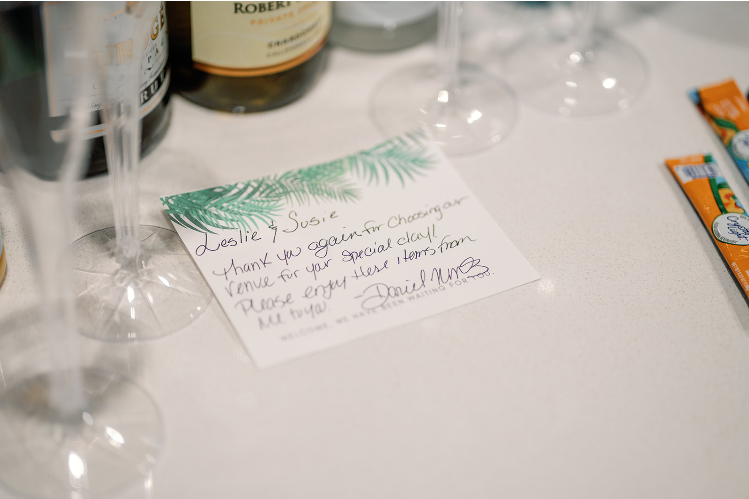 ROBERT
PRIVATE
CHARDONNAY
Leslie & Susie
Thank you again for choosing our
venue for your special day!
Please enjoy these items from
me to you. -Daniel
WELCOME, WE HAVE BEEN WAITING FOR YOU.